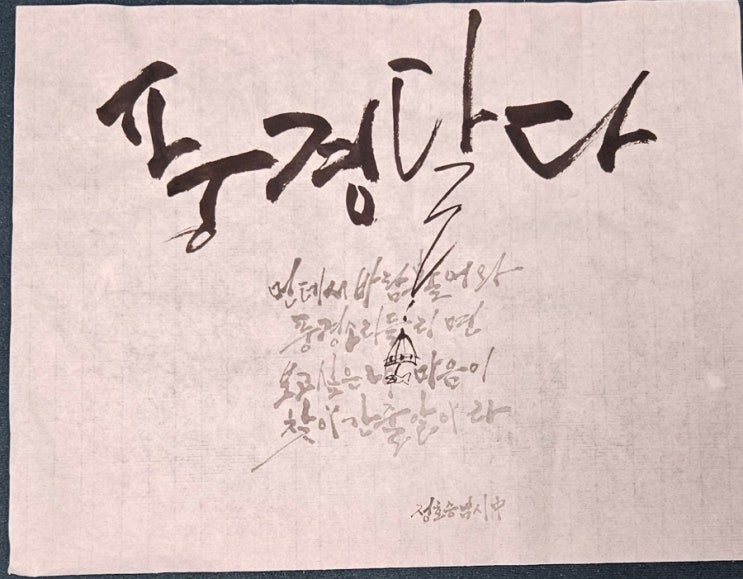 풍경달다
먼데서 바람불어와
풍경소리들리면
보고싶은내마음이
찾아간줄알아라
정호승님시中